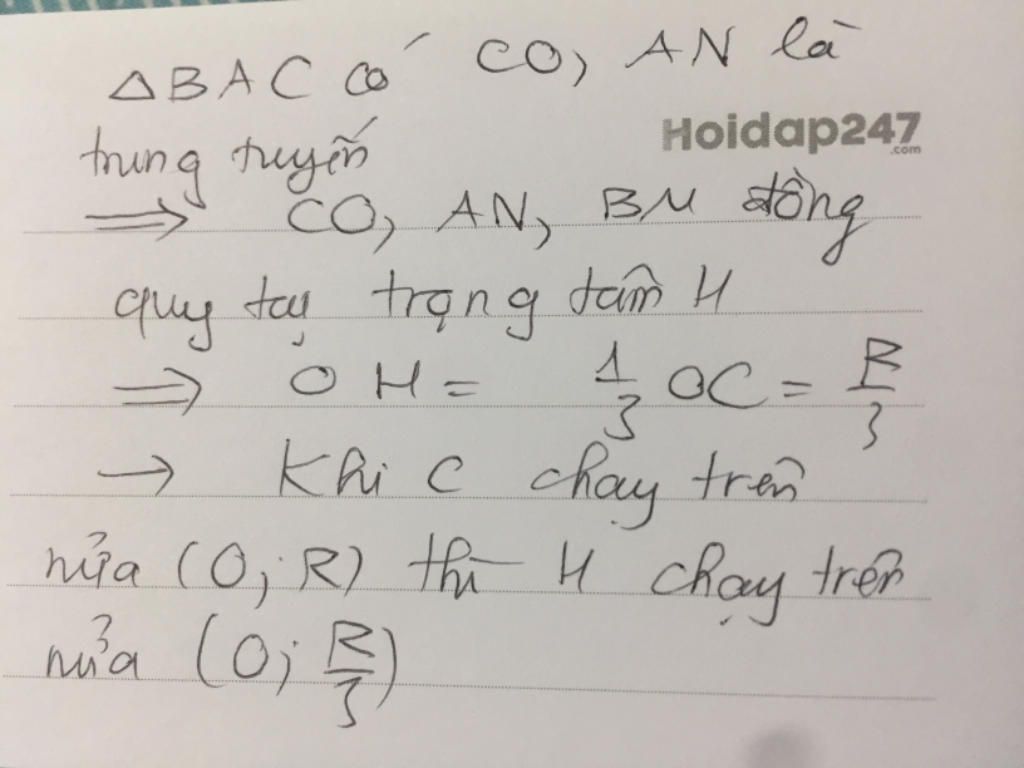 △BAC có CO, AN là
Hoidap247
.com
trung tuyến
⟹ CO, AN, BM đồng
quy tại trọng tâm H
⟹ OH = 1/3 OC = R/3
→ Khi C chạy trên
nửa (O; R) thì H chạy trên
nửa (O; R/3)